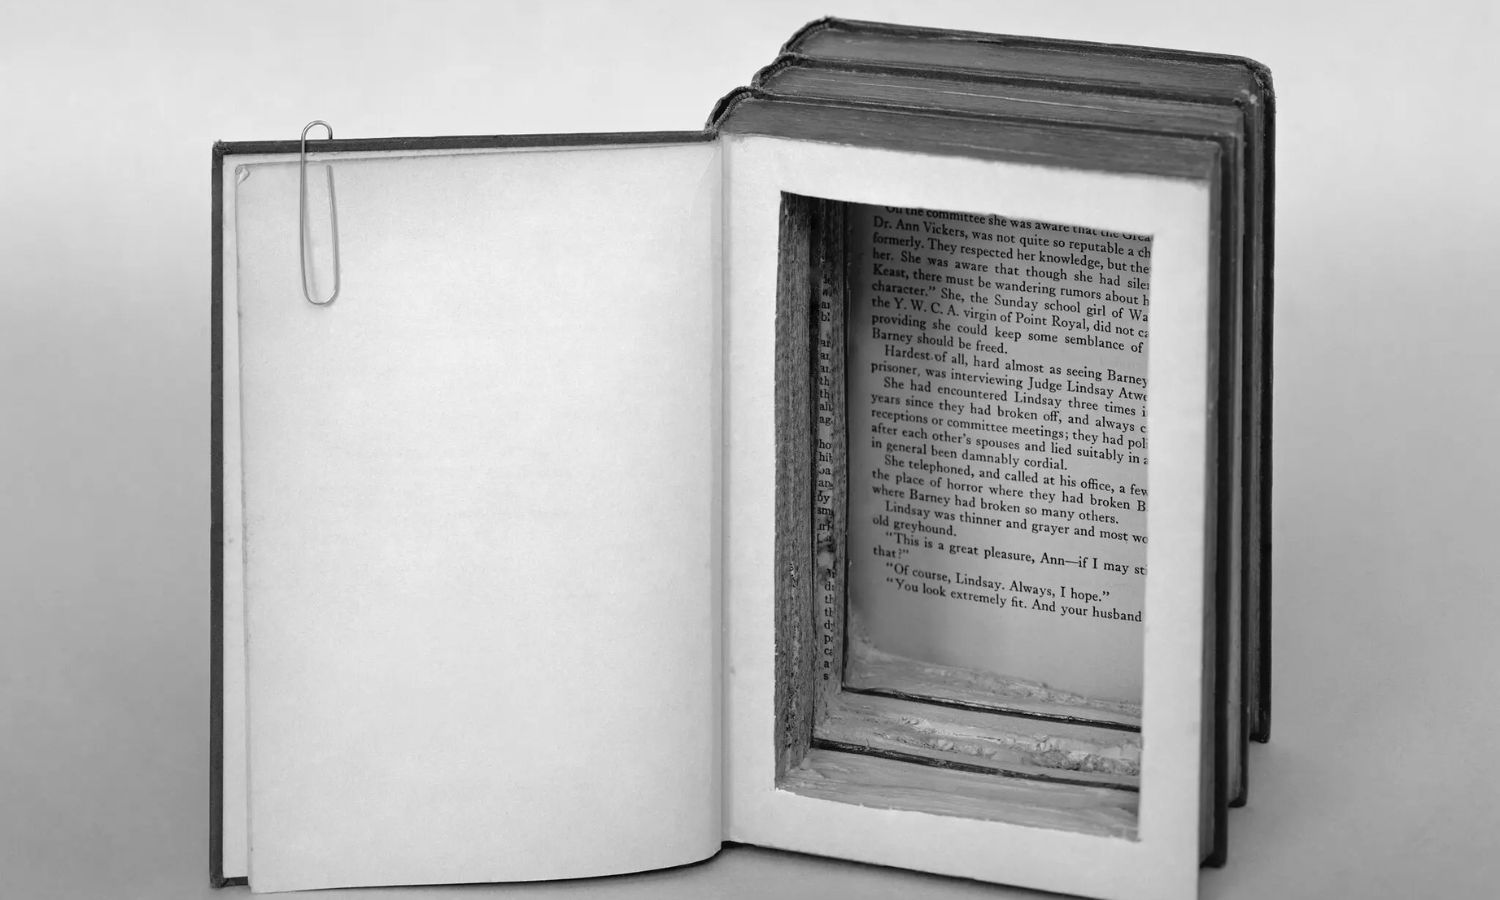 On the committee she was aware that the Grea
Dr. Ann Vickers, was not quite so reputable a ch
formerly. They respected her knowledge, but the
her. She was aware that though she had sile
Keast, there must be wandering rumors about h
character.” She, the Sunday school girl of Wa
the Y. W. C. A. virgin of Point Royal, did not ca
providing she could keep some semblance of
Barney should be freed.
Hardest of all, hard almost as seeing Barney
prisoner, was interviewing Judge Lindsay Atwe
She had encountered Lindsay three times i
years since they had broken off, and always c
receptions or committee meetings; they had pol
after each other’s spouses and lied suitably in a
in general been damnably cordial.
She telephoned, and called at his office, a few
the place of horror where they had broken B
where Barney had broken so many others.
Lindsay was thinner and grayer and most wo
old greyhound.
“This is a great pleasure, Ann—if I may sti
that?”
“Of course, Lindsay. Always, I hope.”
“You look extremely fit. And your husband